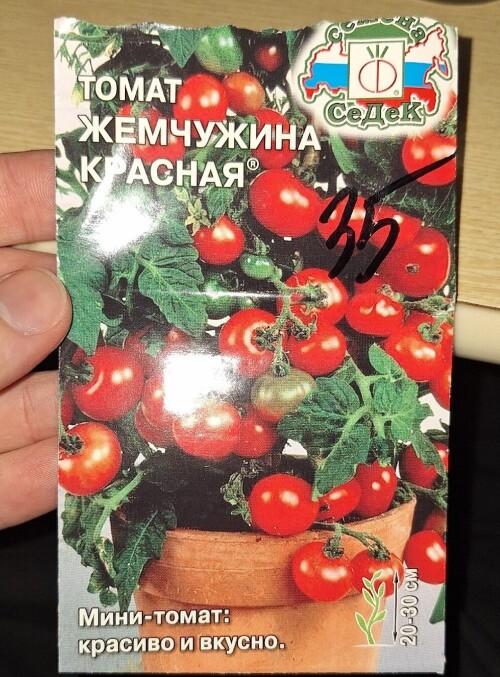 СЕМЕНА
СеДеК
ТОМАТ
ЖЕМЧУЖИНА
КРАСНАЯ®
35
20-30 см
Мини-томат:
красиво и вкусно.